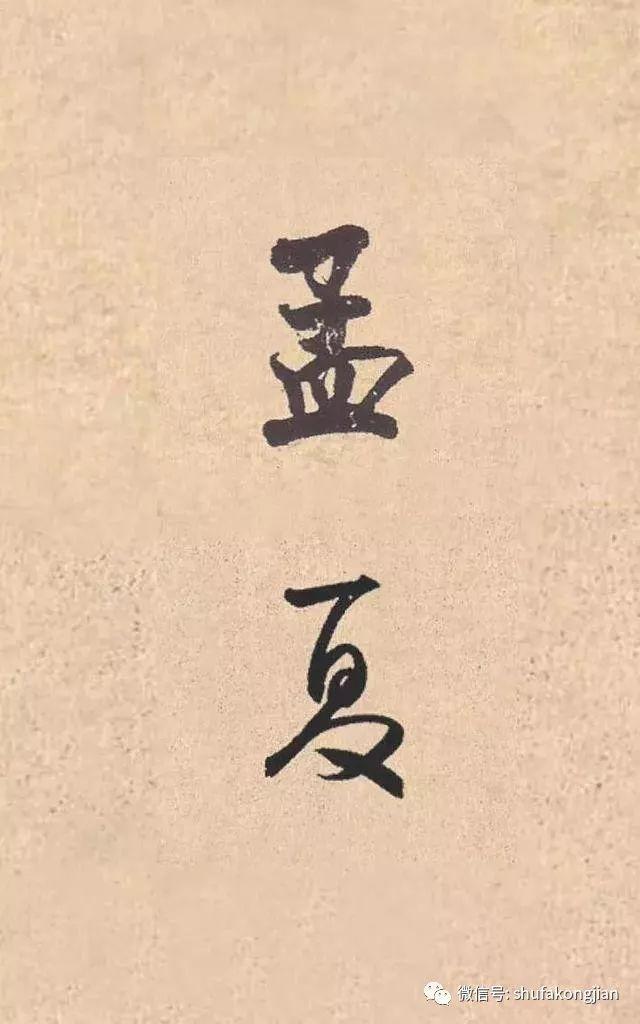 孟夏
微信号: shufakongjian